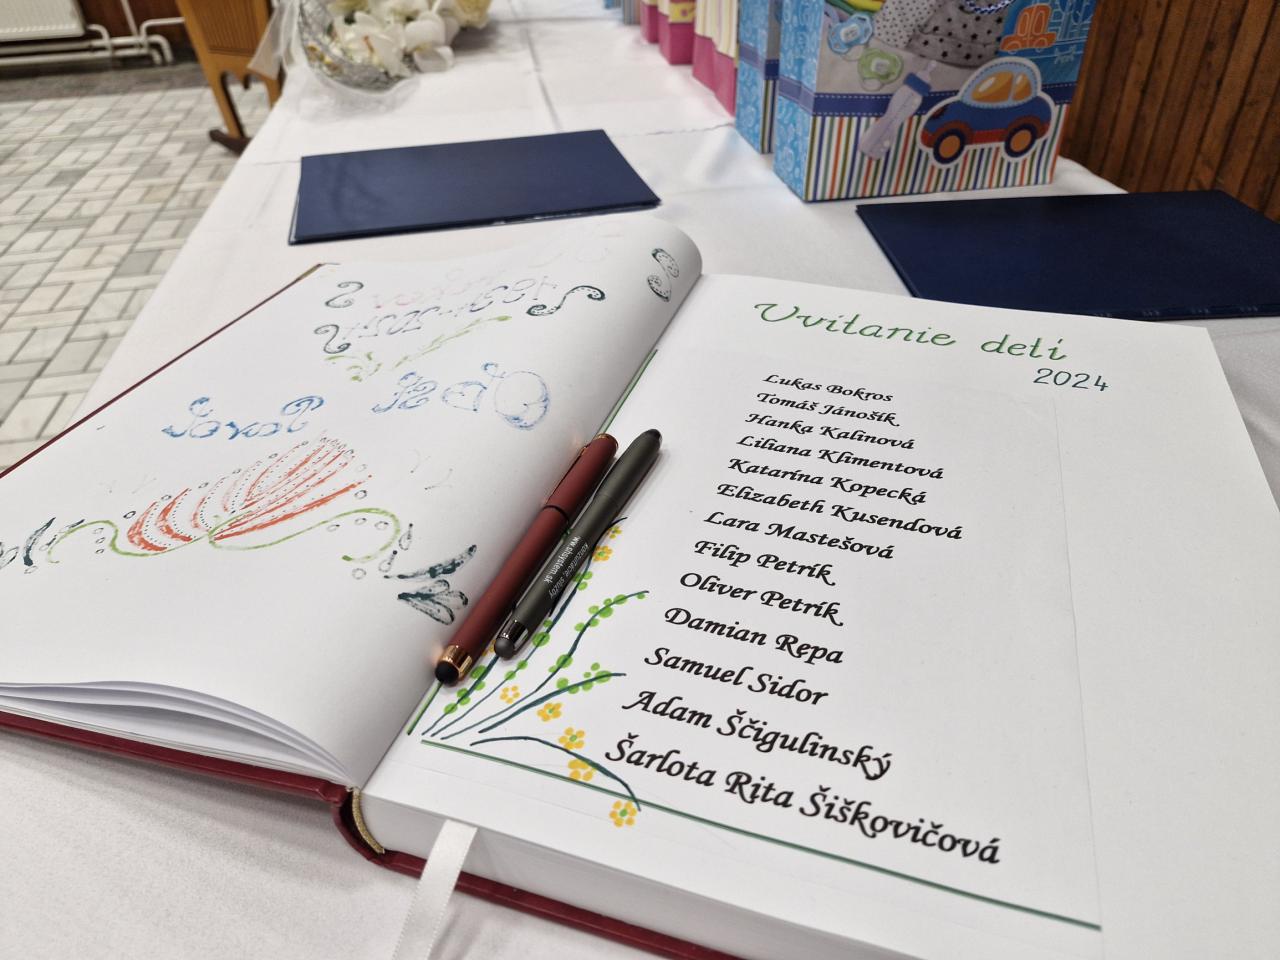 Uvítanie detí
2024
Lukas Bokros
Tomáš Jánošík
Hanka Kalinová
Liliana Klimentová
Katarína Kopecká
Elizabeth Kusendová
Lara Mastešová
Filip Petrík
Oliver Petrík
Damian Repa
Samuel Sidor
Adam Ščigulinský
Šarlota Rita Šiškovičová
konzultácie, služby